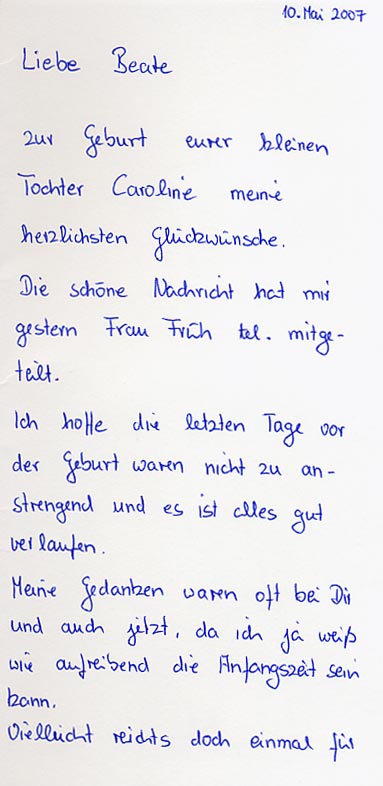 10. Mai 2007
Liebe Beate
zur Geburt eurer kleinen
Tochter Caroline meine
herzlichsten Glückwünsche.
Die schöne Nachricht hat mir
gestern Frau Früh tel. mitge-
teilt.
Ich hoffe die letzten Tage vor
der Geburt waren nicht zu an-
strengend und es ist alles gut
verlaufen.
Meine Gedanken waren oft bei Dir
und auch jetzt, da ich ja weiß
wie aufreibend die Anfangszeit sein
kann.
Vielleicht reichts doch einmal für